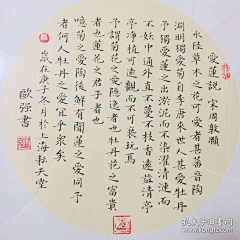 愛蓮說 宋周敦頤
水陸草木之花可愛者甚蕃晉陶
淵明獨愛菊自李唐來世人甚愛牡丹
予獨愛蓮之出淤泥而不染濯清漣而
不妖中通外直不蔓不枝香遠益清亭
亭淨植可遠觀而不可褻玩焉
予謂菊花之隱逸者也牡丹花之富貴
者也蓮花之君子者也
噫菊之愛陶後鮮有聞蓮之愛同予
者何人牡丹之愛宜乎眾矣
歲在庚子冬月於上海耘天堂
歐強書